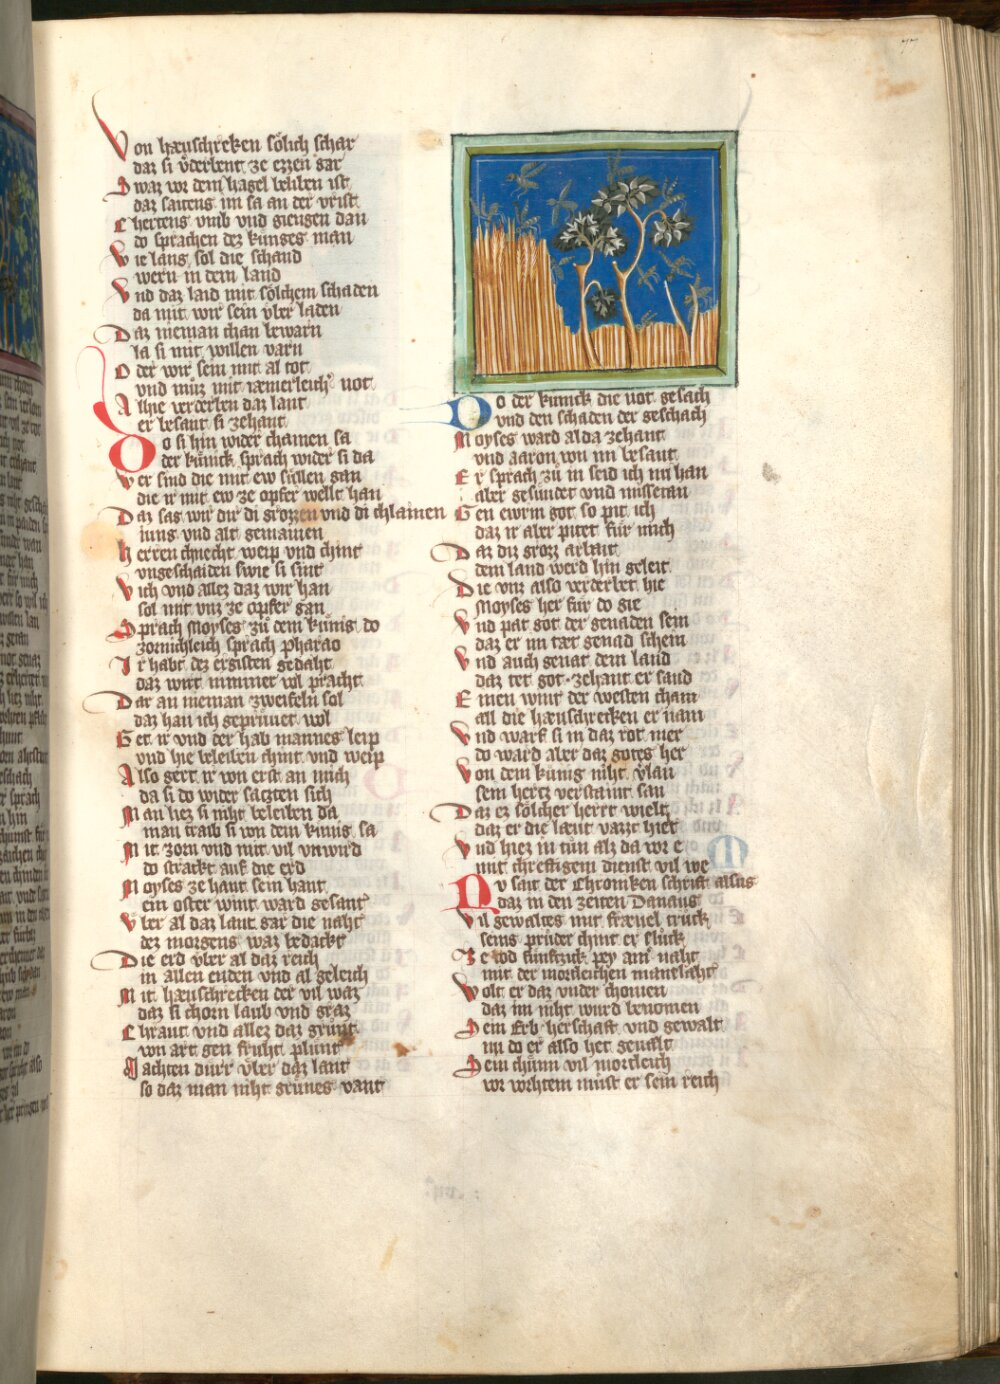 Von hæuschreken sölich schar
daz si v̊derbent ze ezzen gar
Swaz vor dem hagel beliben ist
daz saitens im sa an der vrist
Chertens vmb vnd giengen dan
do sprachen dez kuniges man
Wie lang sol die schand
wern in dem land
Vnd daz laid mit sölchem schaden
da mit wir sein vber laden
Daz nieman chan bewarn
la si mit willen varn
Oder wir sein mit al tot
vnd müz mit iæmerleich' not
Alhie verderben daz lant
er besant si zehant
Do si hin wider chamen sa
der künick sprach wider si da
Wer sind die mit ew süllen gan
die ir mit ew ze opfer wellt han
Daz sag wir dir di grozzen vnd di chlainen
iung vnd alt gemainen
Herren chnecht weip vnd chint
vngeschaiden swie si sint
Vich vnd allez daz wir han
sol mit vnz ze opfer gan
Sprach Moyses zů dem kunig do
zornichleich sprach pharao
Ir habt dez ergisten gedaht
daz wirt nimmer vol pracht
Dar an nieman zweifeln sol
daz han ich geprüuet wol
Get ir vnd der hab mannes leip
vnd hie beleiben chint vnd weip
Also gert ir von erst an mich
da si do wider satzten sich
Man liez si niht beleiben da
man traib si von dem kunig sa
Mit zorn vnd mit vil vnwird
do strackt auf die erd
Moyses ze hant sein hant
ein oster wint ward gesant
Vber al daz lant gar die naht
dez morgens waz bedackt
Die erd vber al daz reich
in allen enden vnd al geleich
Mit hæuschrecken der vil waz
daz si chorn laub vnd graz
Chraut vnd allez daz grünt
von art gen früht plünt
Machten dürr vber daz lant
so daz man niht grünes vant
Do der kunick die not gesach
vnd den schaden der geschach
Moyses ward alda zehant
vnd aaron von im besant
Er sprach zů in seid ich nu han
aber gesundet vnd missetan
Gen ewrm got so pit ich
daz ir aber pitet für mich
Daz diz grozz arbait
dem land werd hin geleit
Die vnz also verderbet hie
Moyses her für do gie
Vnd pat got der genaden sein
daz er im tæt genad schein
Vnd auch genat dem land
daz tet got zehant er sand
Einen wint der westen cham
all die hæuschrecken er nam
Vnd warf si in daz rot mer
do ward aber daz gotes her
Von dem kunig niht v̊lan
sein hertz verstaint san
Daz ez sölcher herrt wielt
daz er die læut vazzt hielt
Vnd hiez in tün alz da vor e
mit chreftigem dienst vil we
Nv sait der Chroniken schrift alsus
daz in den zeiten Danaus
Vil gewaltes mit fræuel trück
seins průder chint er slück
Ze tod fünftzick pey ainr naht
mit der mordleichen manslaht
Wolt er daz vnder chomen
daz im niht wurd benomen
Sein Erb herschaft vnd gewalt
nu do er also het geualt
Sein chünn vil mordleich
vor vorhtem must er sein reich